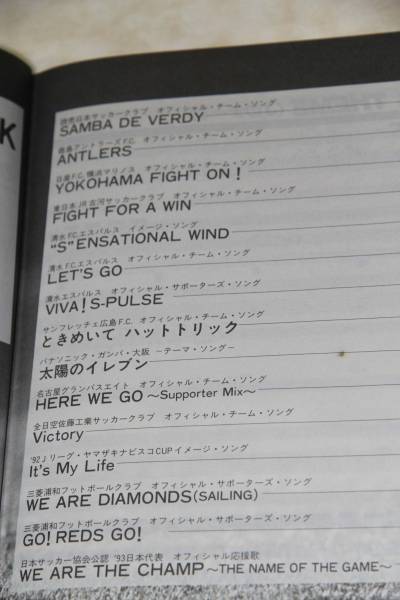 K
読売日本サッカークラブ オフィシャル・チーム・ソング
SAMBA DE VERDY
鹿島アントラーズF.C. オフィシャル・チーム・ソング
ANTLERS
日産F.C.横浜マリノス オフィシャル・チーム・ソング
YOKOHAMA FIGHT ON!
東日本JR古河サッカークラブ オフィシャル・チーム・ソング
FIGHT FOR A WIN
清水F.C.エスパルス イメージ・ソング
"S"ENSATIONAL WIND
清水F.C.エスパルス オフィシャル・チーム・ソング
LET'S GO
清水エスパルス オフィシャル・サポーターズ・ソング
VIVA! S-PULSE
サンフレッチェ広島F.C. オフィシャル・チーム・ソング
ときめいて ハットトリック
パナソニック・ガンバ・大阪 −テーマ・ソング−
太陽のイレブン
名古屋グランパスエイト オフィシャル・チーム・ソング
HERE WE GO 〜Supporter Mix〜
全日空佐藤工業サッカークラブ オフィシャル・チーム・ソング
Victory
'92Jリーグ・ヤマザキナビスコCUPイメージ・ソング
It's My Life
三菱浦和フットボールクラブ オフィシャル・サポーターズ・ソング
WE ARE DIAMONDS(SAILING)
三菱浦和フットボールクラブ オフィシャル・サポーターズ・ソング
GO! REDS GO!
日本サッカー協会公認 '93日本代表 オフィシャル応援歌
WE ARE THE CHAMP〜THE NAME OF THE GAME〜